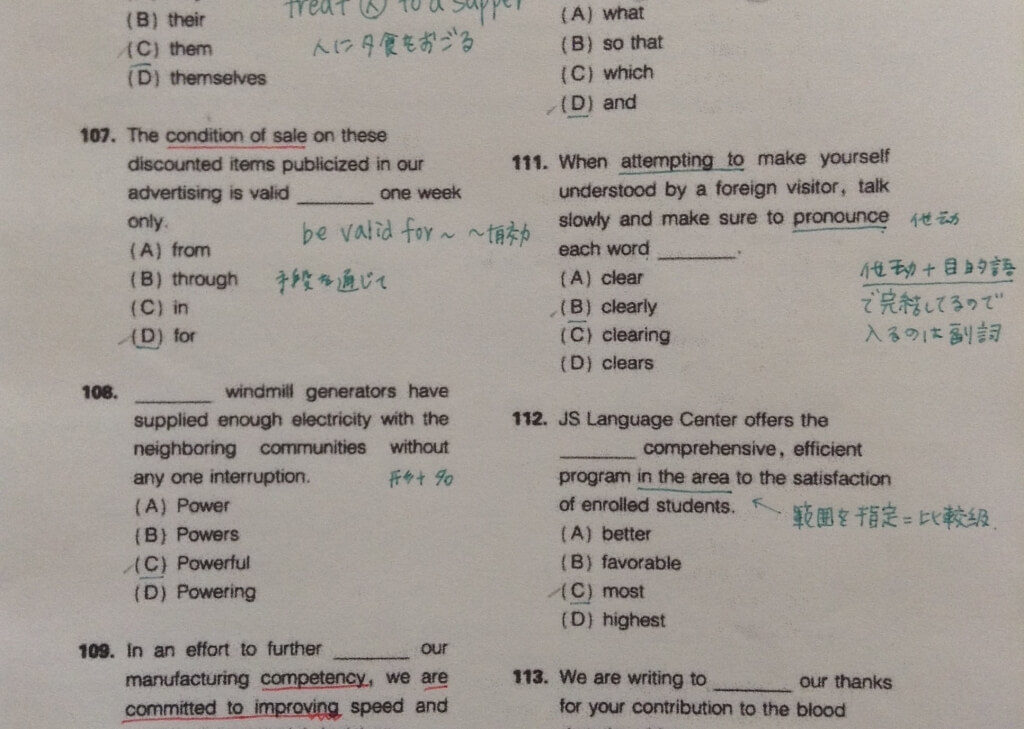 treat 人 to a supper
(B) their
(C) them
人に夕食をおごる
(D) themselves
107. The condition of sale on these
discounted items publicized in our
advertising is valid ______ one week
only.
be valid for~ ~有効
(A) from
(B) through
手段を通じて
(C) in
(D) for
108. ______ windmill generators have
supplied enough electricity with the
neighboring communities without
any one interruption.
形+名
(A) Power
(B) Powers
(C) Powerful
(D) Powering
109. In an effort to further ______ our
manufacturing competency, we are
committed to improving speed and
(A) what
(B) so that
(C) which
(D) and
111. When attempting to make yourself
understood by a foreign visitor, talk
slowly and make sure to pronounce
他動
each word ______.
(A) clear
他動+目的語
(B) clearly
で完結してるので
(C) clearing
入るのは副詞
(D) clears
112. JS Language Center offers the
______ comprehensive, efficient
program in the area to the satisfaction
of enrolled students.
範囲を指定=比較級
(A) better
(B) favorable
(C) most
(D) highest
113. We are writing to ______ our thanks
for your contribution to the blood